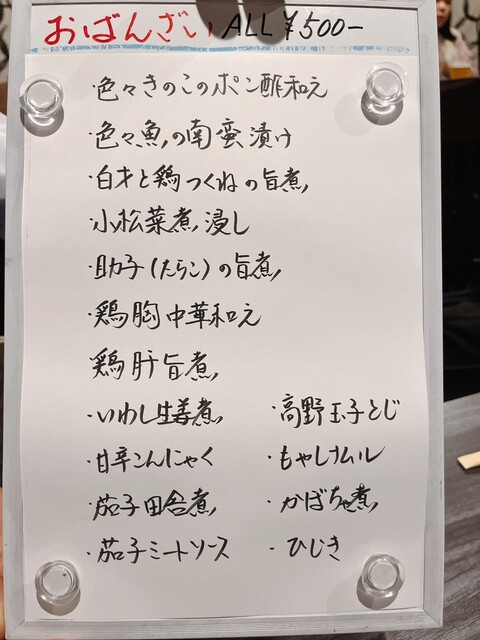 おばんざい ALL ¥500-
・色々きのこのポン酢和え
・色々魚の南蛮漬け
・白才と鶏つくねの旨煮
・小松菜煮浸し
・助子(たらこ)の旨煮
・鶏胸中華和え
鶏肝旨煮
・いわし生姜煮
・甘辛こんにゃく
・茄子田舎煮
・茄子ミートソース
・高野玉子とじ
・もやしナムル
・かぼちゃ煮
・ひじき